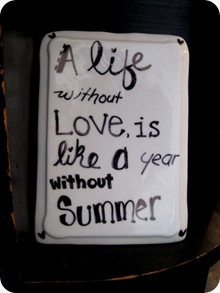 A life
without
LOVE, is
like a year
without
Summer